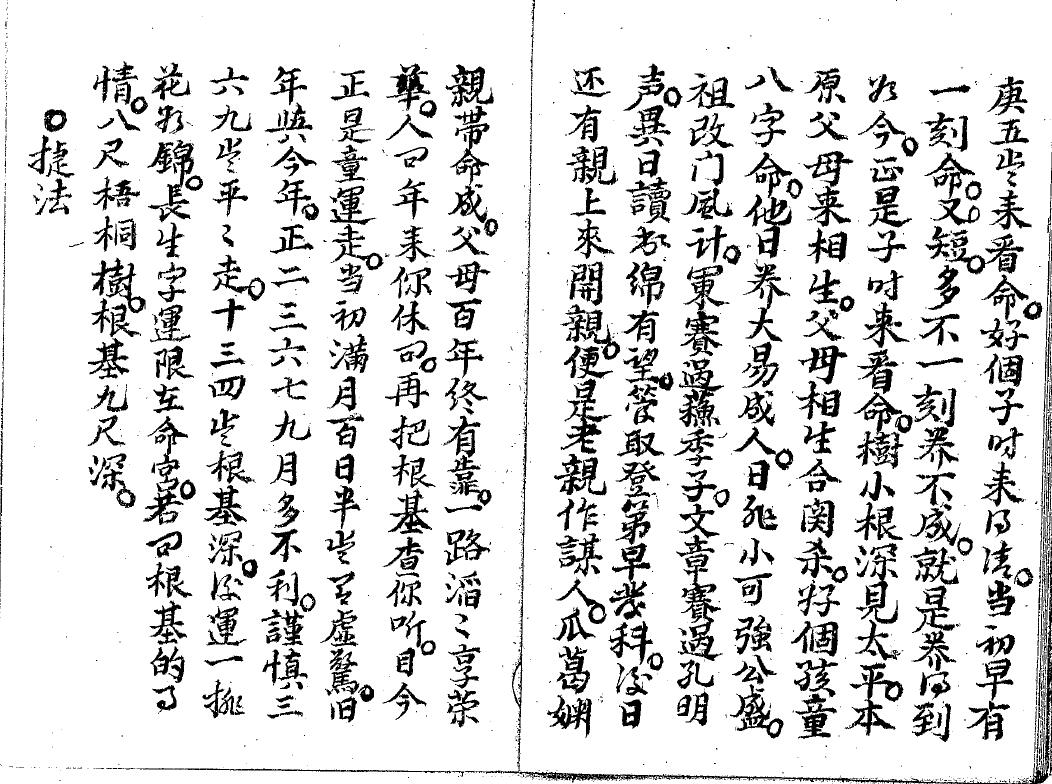 庚五岁来看命。好個子时来得法。当初早有
一刻命。又短。多不一刻养不成。就是养得到
如今。正是子时来看命。樹小根深見太平。本
原父母来相生。父母相生合関杀。好個孩童
八字命。他日养大易成人。日能小可強公盛。
祖改门風计。軍賽過蘇季子。文章賽過孔明
声。異日讀书綿有望。管取登第早裁科。後日
还有親上來開親。便是老親作謀人。瓜葛姻
親帶命成。父母百年终有靠。一路滔〻享荣
華。人口年来你休问。再把根基查你听。目今
正是童運走。当初滿月百日半岁有虚驚。旧
年與今年。正二三六七九月多不利。謹慎三
六九岁平〻走。十三四岁根基深。後運一排
花如錦。長生字運限在命宫。若问根基的了
情。八尺梧桐樹。根基九尺深。
○捷法